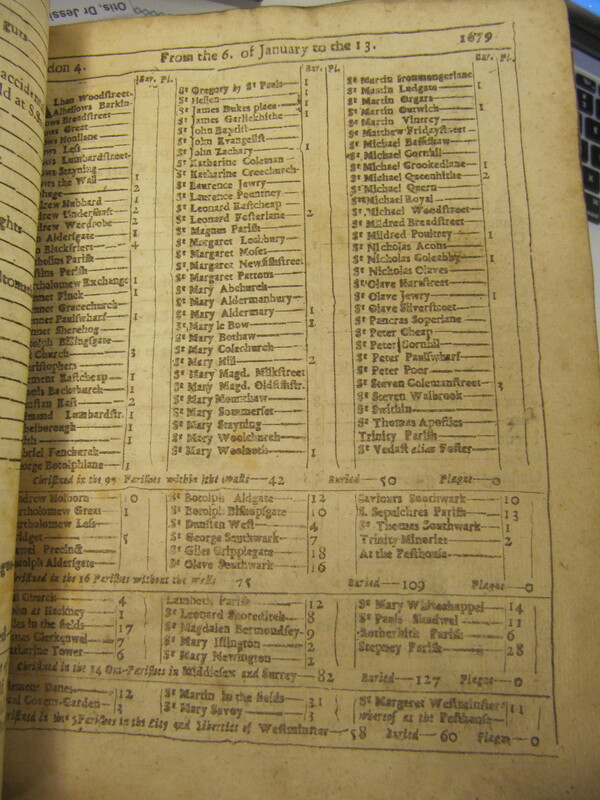 Otis, Dr Jessi
don 4. From the 6. of January to the 13. 1679
Bur. Pl. Bur. Pl. Bur. Pl.
Woodstreet-
Alhallows Barkin-
ows Breadstreet
ows Great
ows Honilane
ows Less
ows Lumbardstreet-
ows Stayning
ows the Wall 1
phage 2
drew Hubbard 1
drew Undershaft 2
drew Wardrobe 2
Aldersgate 1
Blackfriers 4
Parish
tholomew Exchange 1
nnet Finck 1
nnet Gracechurch
nnet Paulswharf 1
nnet Sherehog
olph Billingsgate
Church 3
ristophers
ement Eastcheap 1
Backchurch 1
nstan East 2
mund Lumbardstr. 1
helborough 1
ith 1
briel Fenchurch
orge Botolphlane 1
St Gregory by St Pauls 1
St Hellen 1
St James Dukes place 1
St James Garlickhithe 1
St John Baptist
St John Evangelist
St John Zachary 1
St Katharine Coleman
St Katharine Creechurch
St Laurence Jewry
St Laurence Pountney
St Leonard Eastcheap
St Leonard Fosterlane 2
St Magnus Parish
St Margaret Lothbury
St Margaret Moses
St Margaret Newfishstreet
St Margaret Pattons
St Mary Abchurch
St Mary Aldermanbury
St Mary Aldermary 1
St Mary le Bow 1
St Mary Bothaw
St Mary Colechurch
St Mary Hill 2
St Mary Magd. Milkstreet
St Mary Magd. Oldfishstr.
St Mary Mounthaw
St Mary Sommerset
St Mary Stayning
St Mary Woolchurch
St Mary Woolnoth 1
St Martin Ironmongerlane
St Martin Ludgate 1
St Martin Orgars
St Martin Outwich 1
St Martin Vintrey
St Matthew Fridaystreet
St Michael Bassishaw
St Michael Cornhill
St Michael Crookedlane 1
St Michael Queenhithe 2
St Michael Quern
St Michael Royal
St Michael Woodstreet
St Mildred Breadstreet
St Mildred Poultrey 1
St Nicholas Acons
St Nicholas Coleabby 1
St Nicholas Olaves
St Olave Hartstreet
St Olave Jewry 1
St Olave Silverstreet
St Pancras Soperlane
St Peter Cheap
St Peter Cornhill
St Peter Paulswharf
St Peter Poor
St Steven Colemanstreet 3
St Steven Walbrook
St Swithin
St Thomas Apostles
Trinity Parish
St Vedast alias Foster
Christned in the 97 Parishes within the walls—42 Buried—50 Plague—0
ndrew Holborn 10
rtholomew Great 1
rtholomew Less
ridget 5
Precinct
otolph Aldersgate
St Botolph Aldgate 12
St Botolph Bishopsgate 10
St Dunstan West 4
St George Southwark 7
St Giles Cripplegate 18
St Olave Southwark 16
Saviours Southwark 10
S. Sepulchres Parish 13
St Thomas Southwark 1
Trinity Minories 2
At the Pesthouse
ristned in the 16 Parishes without the walls 75 Buried—109 Plague—0
Church 4
ohn at Hackney 1
iles in the fields 17
ames Clerkenwel 7
atharine Tower 6
Lambeth Parish 12
St Leonard Shoreditch 8
St Magdalen Bermondsey 9
St Mary Islington 2
St Mary Newington 2
St Mary Whitechappel 14
St Pauls Shadwel 11
Rotherhith Parish 6
Stepney Parish 28
Christned in the 14 Out-Parishes in Middlesex and Surrey—82 Buried—127 Plague—0
lement Danes 12
Covent-Garden 3
St Martin in the fields 31
St Mary Savoy 3
St Margaret Westminster 11
whereof at the Pesthouse
ristned in the 5 Parishes in the City and Liberties of Westminster—58 Buried—60 Plague—0